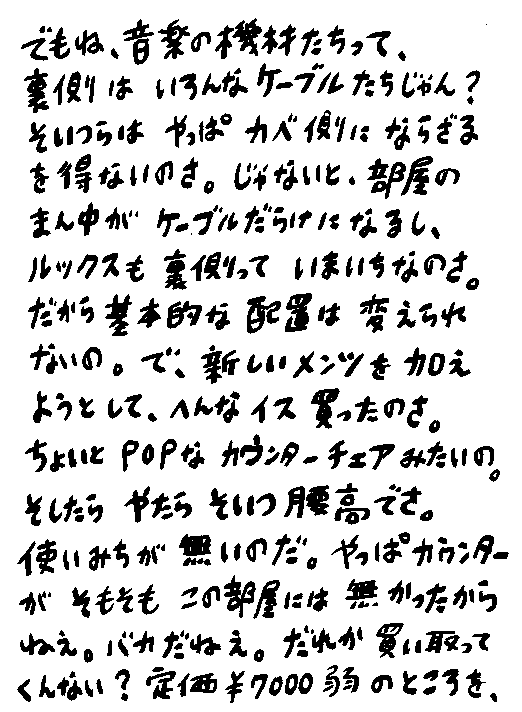 でもね、音楽の機材たちって、
裏側は いろんなケーブルたちじゃん?
そいつらは やっぱ カベ側に ならざる
を得ないのさ。じゃないと、部屋の
まん中が ケーブルだらけになるし、
ルックスも 裏側って いまいちなのさ。
だから 基本的な 配置は 変えられ
ないの。で、新しいメンツを 加え
ようとして、へんな イス 買ったのさ。
ちょいと POPな カウンターチェアみたいの。
そしたら やたら そいつ 腰高でさ。
使いみちが 無いのだ。やっぱカウンター
が そもそも この部屋には 無かったから
ねぇ。バカだねぇ。だれか 買い取って
くんない? 定価¥7000弱 のところを、